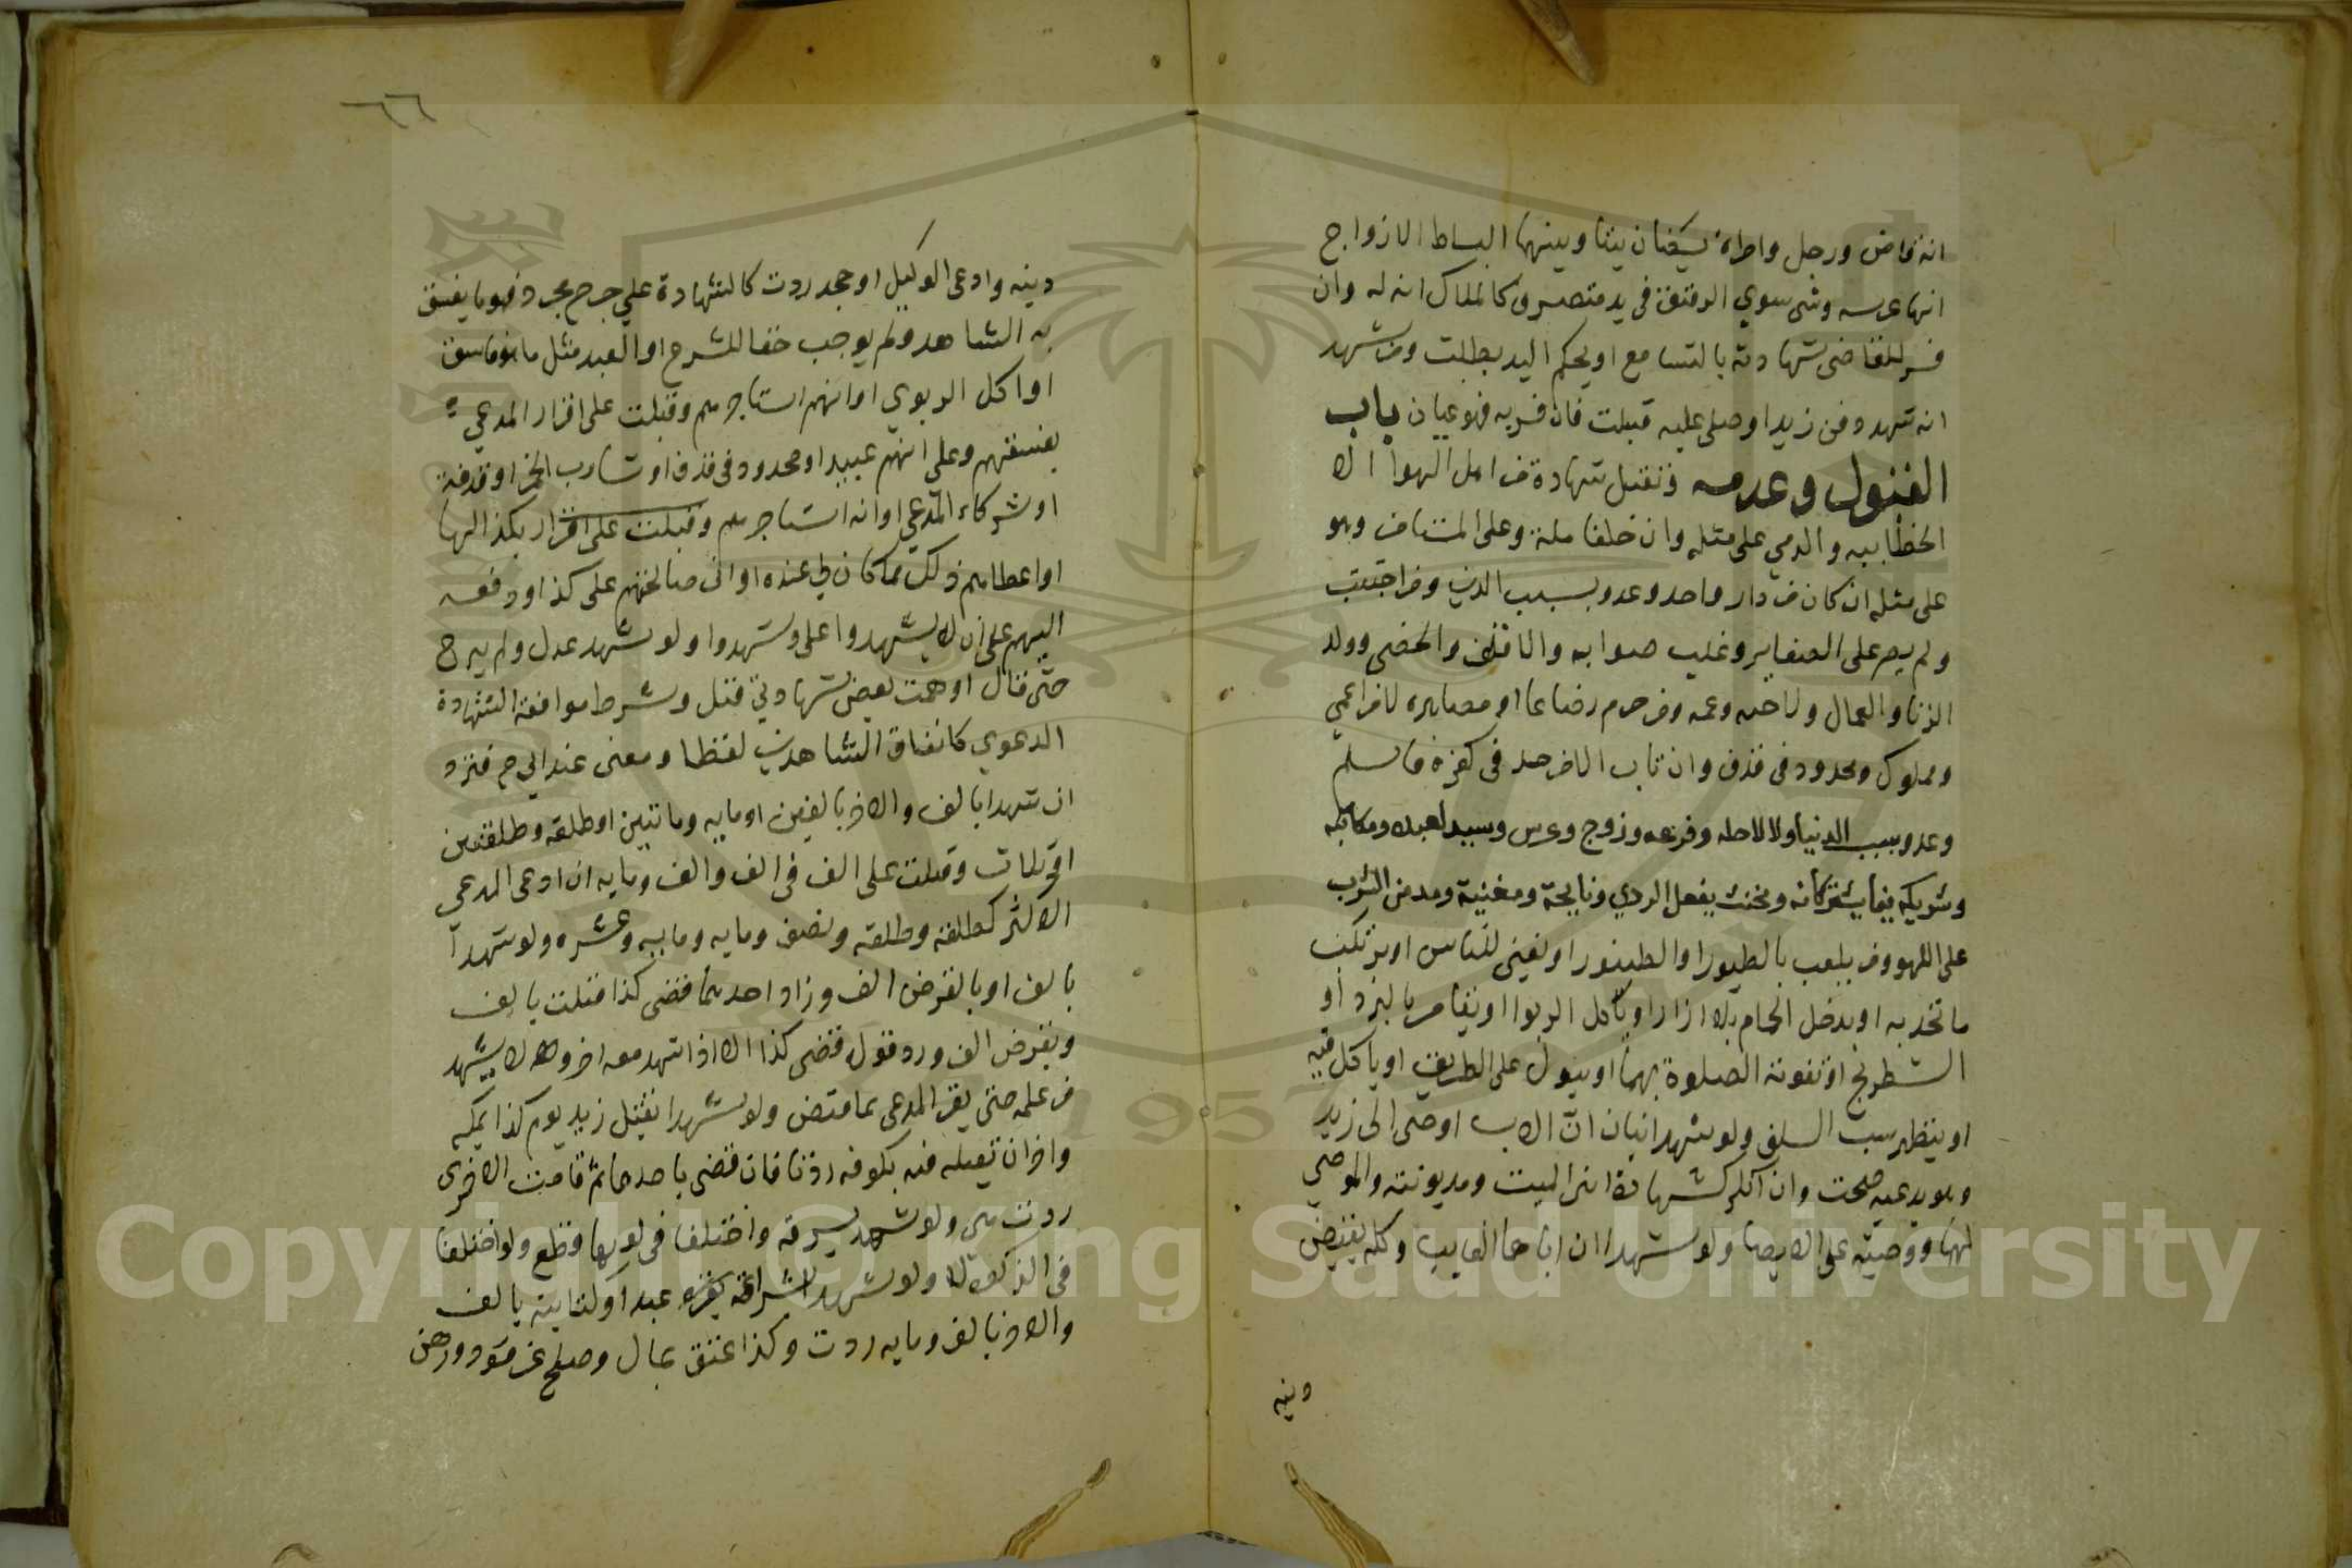 انه قاض ورجل وامراة يسكنان بيتا وبينهما انبساط الازواج
انها عرسه وشى سوي الرقيق في يد متصرف كالملاك انه له وان
فسر للقاضى شهادته بالتسامع او بحكم اليد بطلت ومن شهد
انه شهد دفن زيد او صلى عليه قبلت فان فسر به فهو عيان باب
القبول وعدمه وتقبل شهادة من اهل الهوا الا
الخطابيه والذمي على مثله وان خلفا ملة وعلى المستامن وهو
على مثله ان كان من دار واحد وعدو بسبب الدين ومن اجتنب
ولم يصر على الصغاير وغلب صوابه والاقلف والخصى وولد
الزنا والعمال ولاخيه وعمه ومن حرم رضاعا او مصاهره لا من اعمي
ومملوك ومحدود في قذف وان تاب الا من حد في كفره فاسلم
وعدو بسبب الدنيا ولا لاصله وفرعه وزوج وعرس وسيد لعبده ومكاتبه
وشريكه فيما يشتركانه ومخنث يفعل الردي ونايحة ومغنية ومدمن الشرب
على اللهو ومن يلعب بالطيور او الطنبور او يغني للناس او يرتكب
ما يحد به او يدخل الحمام بلا ازار او ياكل الربوا او يقامر بالنرد او
الشطرنج او تفوته الصلوة بهما او يبول على الطريق او ياكل فيه
او يظهر سب السلف ولو شهد ابنان ان الاب اوصى الى زيد
وهو يدعيه صحت وان انكر كشهادة ابنى الميت ومديونته والموصي
لهما ووصيته على الايصا ولو شهدا ان اباهما الغايب وكله بقبض
دينه
٦٦
دينه وادعى الوكيل او جحد ردت كالشهادة علي جرح مجرد وهو ما يفسق
به الشاهد ولم يوجب حقا للشرع او العبد مثل ما هو فاسق
او اكل الربوي او انهم استاجرهم وقبلت على اقرار المدعي
بفسقهم وعلى انهم عبيد او محدود في قذف او شارب الخمر او قذفة
او شركاء المدعي او انه استاجرهم وقبلت على اقرار بكذا لها
او اعطاهم ذلك مما كان لي عنده او اني صالحتهم على كذا ودفعه
اليهم على ان لا يشهدوا على وشهدوا ولو شهد عدل ولم يبرح
حتى قال اوهمت بعض شهادتي قبل وشرط موافقة الشهادة
الدعوي كاتفاق الشاهدين لفظا ومعنى عند ابي ح فترد
ان شهدا بالف والاخر بالفين او مايه ومايتين او طلقه وطلقتين
او ثلاث وقبلت على الف في الف والف ومايه ان ادعى المدعي
الاكثر كطلقة وطلقه ونصف ومايه ومايه وعشره ولو شهدا
بالف او بالقرض الف وزاد احدهما قضى كذا قبلت بالف
وبقرض الف ورد قول قضى كذا الا اذا شهد معه اخر ولا يشهد
من علمه حتى يقر المدعى بما قبض ولو شهدا بقتل زيد يوم كذا بمكه
واخران بقتله فيه بكوفه ردتا فان قضى باحدهما ثم قامت الاخرى
ردت هي ولو شهد بسرقه واختلفا في لونها قطع ولو اختلفا
في الذكورة لا ولو شهد لشرا عبد او كتابته بالف
والاخر بالف ومايه ردت وكذا عتق بمال وصلح عن قود ورهن